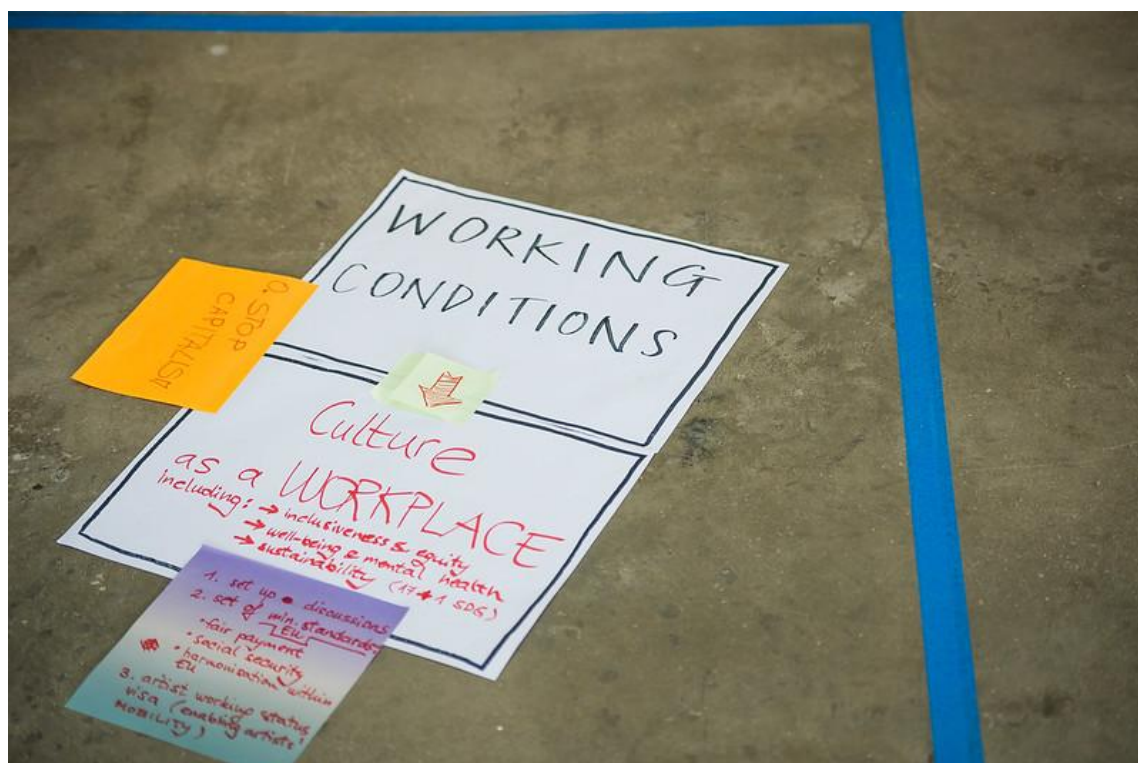 WORKING
CONDITIONS
0. STOP
CAPITALISM
Culture
as a WORKPLACE
including: → inclusiveness & equity
→ well-being & mental health
→ sustainability (17+1 SDG)
1. set up discussions
2. set of min. standards
EU
• fair payment
• social security
• harmonisation within
EU
3. artist working status,
visa (enabling artists'
MOBILITY)